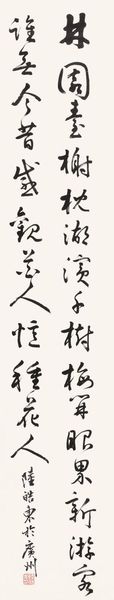 林園臺榭枕湖濱千樹梅開眼界新游客
誰無今昔感觀花人憶種花人
陸皓東於廣州